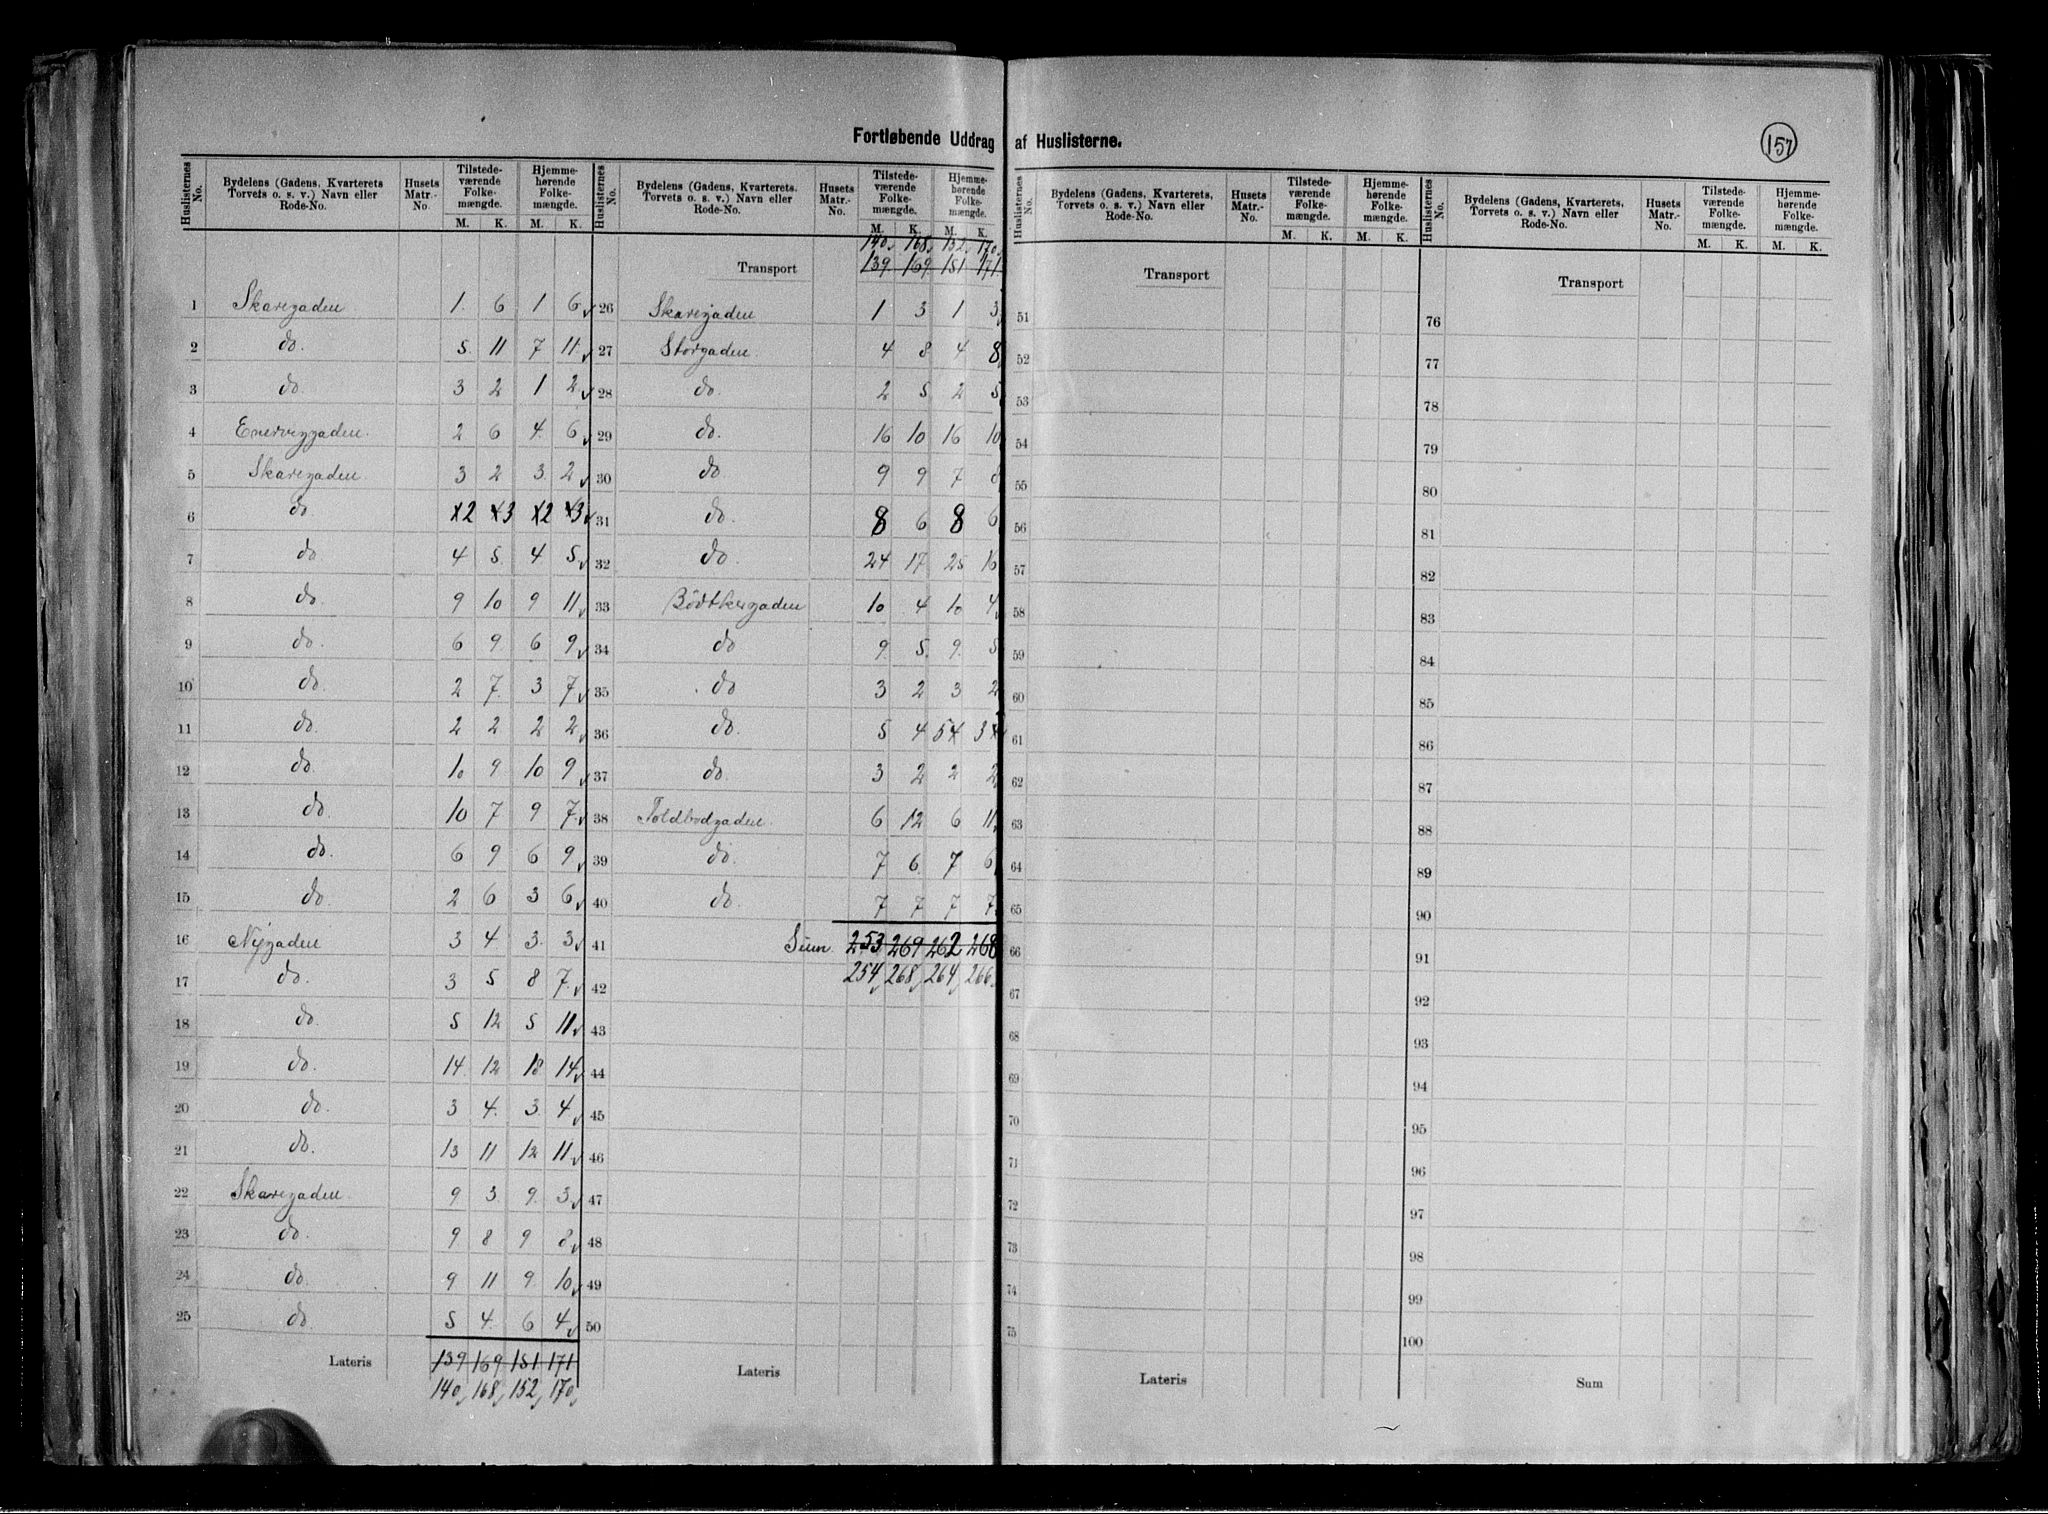 Fortløbende Uddrag af Huslisterne.
157
Huslisternes No. | Bydelens (Gadens, Kvarterets Torvets o. s. v.) Navn eller Rode-No. | Husets Matr.-No. | Tilstedeværende Folkemængde. M. K. | Hjemmehørende Folkemængde. M. K.
1 Skaregaden 1. 6 1 6
2 do. 5. 11 7 11
3 do. 3 2 1 2
4 Enerveggaden. 2 6 4. 6
5 Skaregaden 3 2 3. 2
6 do 2 3 2 3
7 do. 4 5. 4 5
8 do. 9 10 9 11
9 do. 6 9. 6 9
10 do. 2 7. 3 7
11 do. 2 2 2 2
12 do. 10 9 10 9
13 do. 10 7 9 7
14 do. 6 9 6 9
15 do. 2 6 3 6
16 Nygaden 3 4 3. 3
17 do. 3 5 8 7
18 do. 5 12 5 11
19 do. 14. 12 18 14
20 do. 3 4. 3. 4
21 do. 13 11 12 11
22 Skaregaden. 9 3. 9. 3
23 do. 9 8 9 8
24 do. 9 11 9 10
25 do. 5 4. 6 4
Lateris 139 169 151 171
140 168 152 170
Huslisternes No. | Bydelens (Gadens, Kvarterets. Torvets o. s. v.) Navn eller Rode-No. | Husets Matr.-No. | Tilstedeværende Folkemængde. M. K. | Hjemmehørende Folkemængde. M. K.
140 168 152 170
Transport 139 169 151 171
26 Skaregaden 1 3 1 3
27 Storgaden. 4 8 4 8
28 do 2 5 2 5
29 do. 16 10 16 10
30 do 9 9 7 8
31 do. 8 6 8 6
32 do. 24 17 25 16
33 Bödtkergaden 10 4 10 4
34 do 9. 5. 9. 5
35 do 3 2 3 2
36 do. 5 4 54 3
37 do. 3 2 2 2
38 Toldbodgaden. 6 12 6 11
39 do. 7 6. 7 6
40 do. 7 7 7 7
41 Sum 253 269 262 268
254 268 264 266
42
43
44
45
46
47
48
49
50
Lateris
Huslisternes No. | Bydelens (Gadens, Kvarterets, Torvets o. s. v.) Navn eller Rode-No. | Husets Matr.-No. | Tilstedeværende Folkemængde. M. K. | Hjemmehørende Folkemængde. M. K.
Transport
51
52
53
54
55
56
57
58
59
60
61
62
63
64
65
66
67
68
69
70
71
72
73
74
75
Lateris
Huslisternes No. | Bydelens (Gadens, Kvarterets, Torvets o. s. v.) Navn eller Rode-No. | Husets Matr.-No. | Tilstedeværende Folkemængde. M. K. | Hjemmehørende Folkemængde. M. K.
Transport
76
77
78
79
80
81
82
83
84
85
86
87
88
89
90
91
92
93
94
95
96
97
98
99
100
Sum